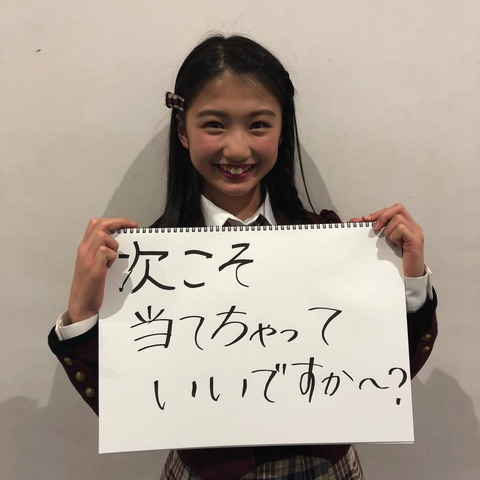 次こそ
当てちゃって
いいですか〜?